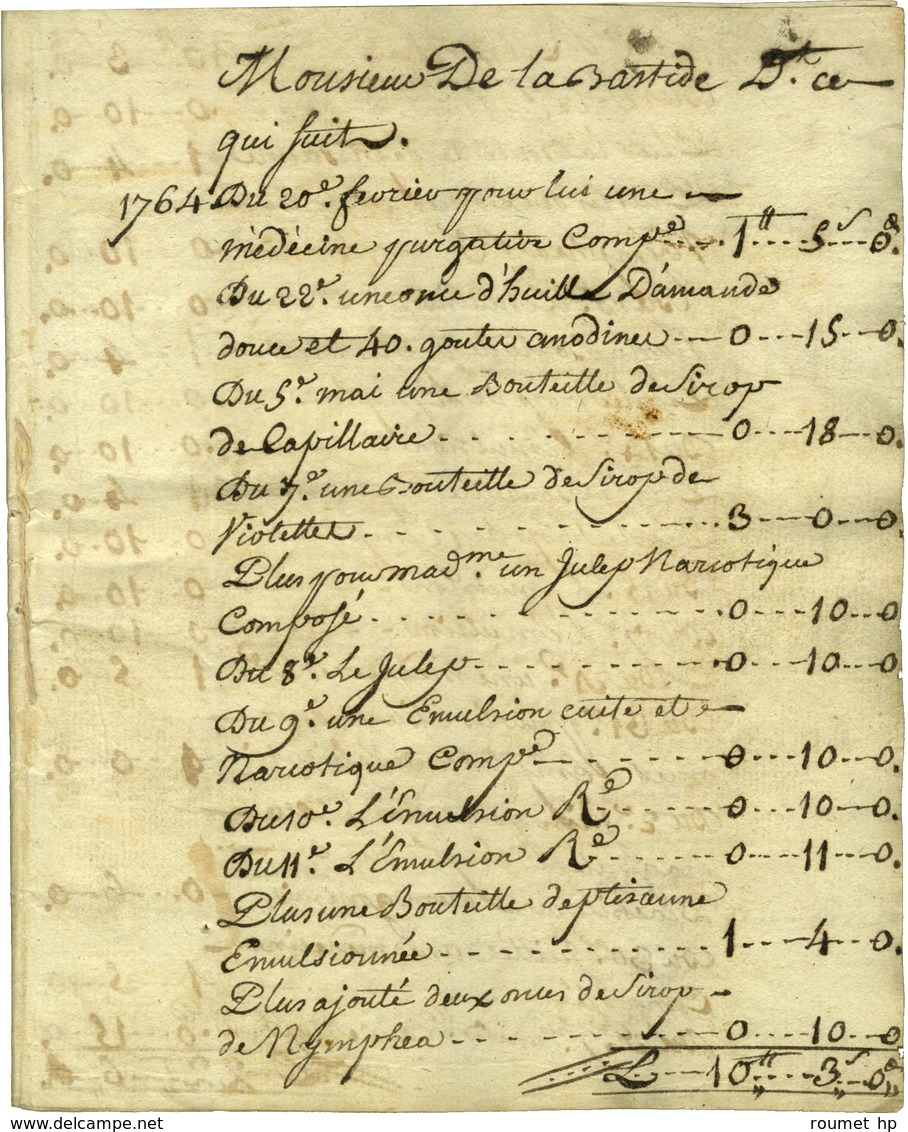 Monsieur De la Bastide D.t ce
qui suit.
1764. Du 20.e fevrier pour lui une
médécine purgative Comp.ée .... 1 tt .... 5 s ... 0 d.
Du 22.e une once d'huille D'amande
douce et 40. goutes anodines -- 0 ... 15 .. 0.
Du 5.e mai une Bouteille de Sirop
de Capillaire. . . . . . . . . 0 ... 18 -- 0.
Du 7.e une Bouteille de Sirop de
Violettes . . . . . . . . . . ... 3 ... 0 -- 0
Plus pour mad.me un Julep Narcotique
Composé . . . . . . . . . . . 0 ... 10 -- 0
Du 8.e Le Julep . . . . . . . 0 ... 10 -- 0
Du 9.e une Emulsion cuite et
Narcotique Comp.ée . . . . . . 0 ... 10 .. 0.
Du 10.e L'Emulsion R.ée . . . . 0 ... 10 .. 0.
Du 11.e L'Emulsion R.ée . . . . 0 ... 11 .. 0.
Plus une Bouteille de ptisanne
Emulsionnée . . . . . . . . . 1 ... 4 .. 0.
Plus ajouté deux onces de Sirop
de Nymphea . . . . . . . . . . 0 ... 10 .. 0
L .... 10 tt .... 3 s .. 0 d
roumet hp